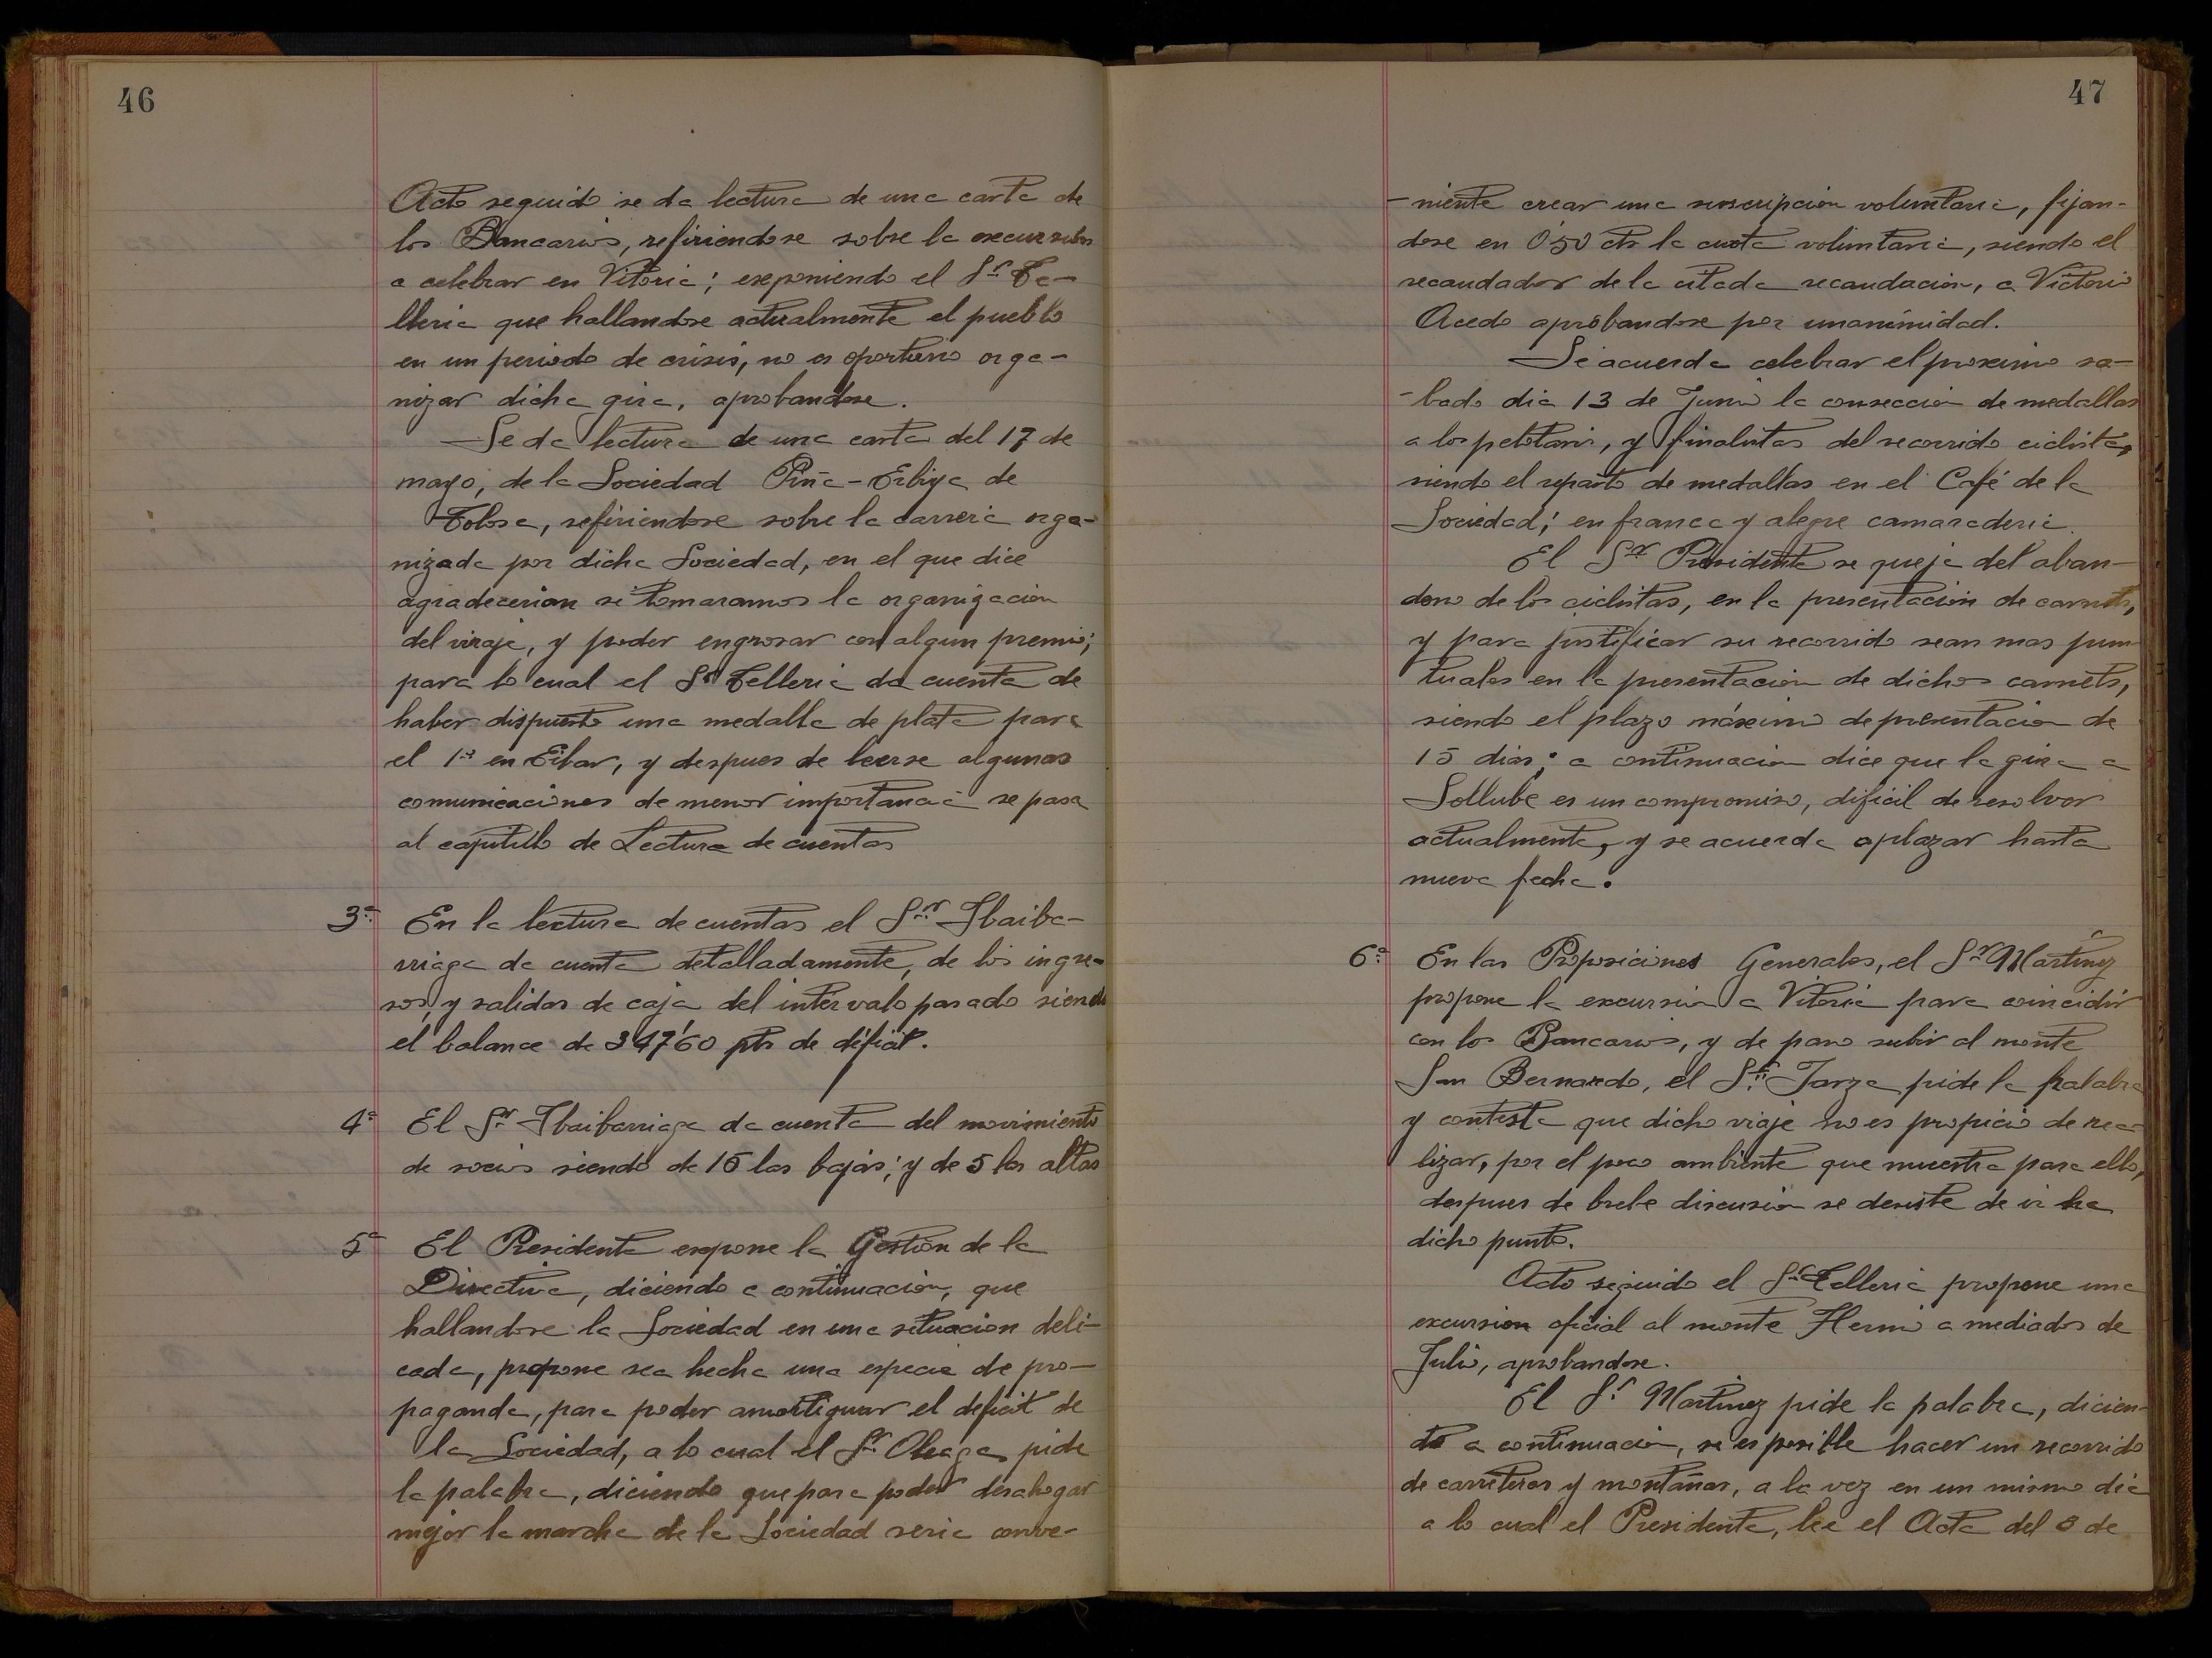 46
Acto seguido se da lectura de una carta de
los Bancarios, refiriendose sobre la excursion
a celebrar en Vitoria; exponiendo el Sr Te-
lleria que hallandose actualmente el pueblo
en un periodo de crisis, no es oportuno orga-
nizar dicha gira, aprobandose.
Se da lectura de una carta del 17 de
mayo, de la Sociedad Piña-Erbiya de
Tolosa, refiriendose sobre la carrera orga-
nizada por dicha Sociedad, en el que dice
agradecerian si tomaramos la organizacion
del viraje, y poder engrosar con algun premio;
para lo cual el Sr Telleria da cuenta de
haber dispuesto una medalla de plata para
el 1º en Eibar, y despues de leerse algunas
comunicaciones de menor importancia se pasa
al capitulo de Lectura de cuentas
3º En la lectura de cuentas el Sr Ibaiba-
rriaga da cuenta detalladamente, de los ingre-
sos, y salidas de caja del intervalo pasado siendo
el balance de 347'60 pts de déficit.
4º El Sr Ibaibarriaga da cuenta del movimiento
de socios siendo de 16 las bajas; y de 5 las altas
5º El Presidente expone la Gestión de la
Directiva, diciendo a continuación, que
hallandose la Sociedad en una situacion deli-
cada, propone sea hecha una especie de pro-
paganda, para poder amortiguar el deficit de
la Sociedad, a lo cual el Sr. Oleaga pide
la palabra, diciendo que para poder desahogar
mejor la marcha de la Sociedad seria conve-
47
-niente crear una suscripcion voluntaria, fijan-
dose en 0'50 cts la cuota voluntaria, siendo el
recaudador de la citada recaudacion, a Victorio
Acedo aprobandose por unanimidad.
Se acuerda celebrar el proximo sa-
-bado dia 13 de Junio la consección de medallas
a los pelotaris, y finalistas del recorrido ciclista,
siendo el reparto de medallas en el Café de la
Sociedad; en franca y alegre camaraderia.
El Sr Presidente se queja del aban-
dono de los ciclistas, en la presentación de carnets,
y para justificar su recorrido sean mas pun-
tuales en la presentación de dichos carnets,
siendo el plazo máximo de presentacion de
15 dias; a continuacion dice que la gira a
Sollube es un compromiso, dificil de resolver
actualmente, y se acuerda aplazar hasta
nueva fecha.
6º En las Proposiciones Generales, el Sr Martinez
propone la excursion a Vitoria para coincidir
con los Bancarios, y de paso subir al monte
San Bernardo, el Sr. Jarza pide la palabra
y contesta que dicho viaje no es propicio de rea-
lizar, por el poco ambiente que muestra para ello,
despues de brebe discusion se desiste de ir ha
dicho punto.
Acto seguido el Sr Telleria propone una
excursion oficial al monte Hernio a mediados de
Julio, aprobandose.
El Sr. Martinez pide la palabra, dicien-
do a continuación, si es posible hacer un recorrido
de carreteras y montañas, a la vez en un mismo dia
a lo cual el Presidente, lee el Acta del 8 de